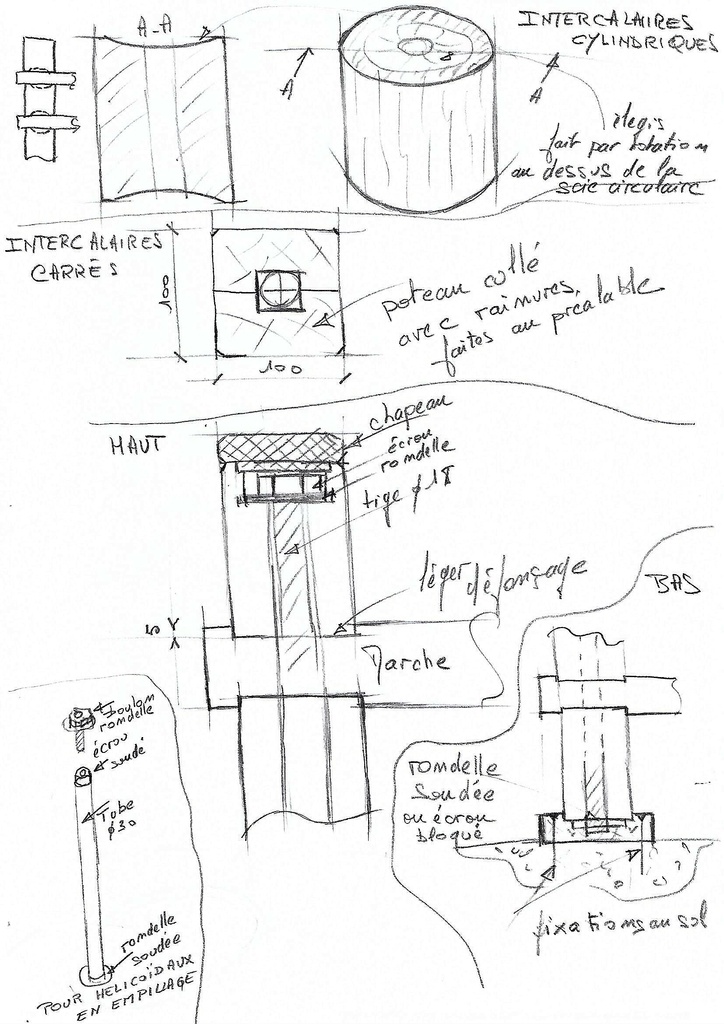 A-A
INTERCALAIRES
CYLINDRIQUES
A
A
élegis
fait par rotation
au dessus de la
scie circulaire
INTERCALAIRES
CARRÉS
100
100
poteau collé
avec rainures,
faites au préalable
HAUT
chapeau
écrou
rondelle
tige ϕ18
léger défonçage
5
Marche
BAS
rondelle
soudée
ou écrou
bloqué
fixations au sol
rondelle
écrou
soudé
Tube
ϕ30
rondelle
soudée
POUR HELICOÏDAUX
EN EMPILLAGE